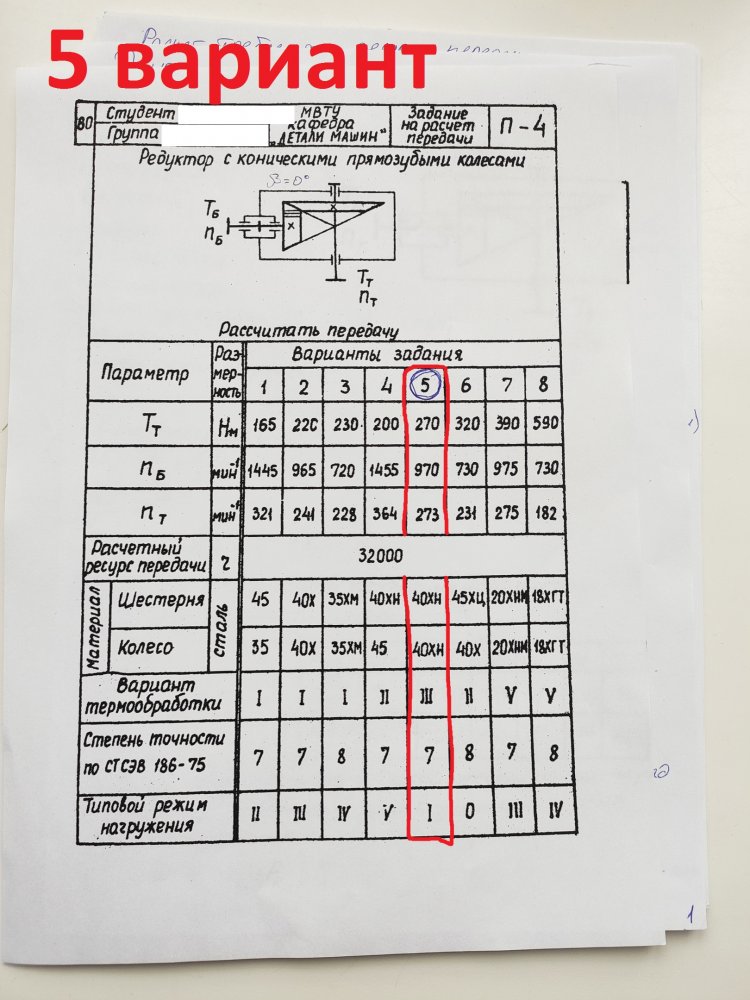 5 вариант
80 Студент МВТУ Задание П-4
Группа кафедра на расчет
„ДЕТАЛИ МАШИН" передачи
Редуктор с коническими прямозубыми колесами
β=0°
Tб
nб
Tт
nт
Рассчитать передачу
Параметр Размерность Варианты задания
1 2 3 4 5 6 7 8
Tт Нм 165 220 230 200 270 320 390 590
nб мин⁻¹ 1445 965 720 1455 970 730 975 730
nт мин⁻¹ 321 241 228 364 273 231 275 182
Расчетный ресурс передачи ч 32000
Материал Шестерня сталь 45 40Х 35ХМ 40ХН 40ХН 45ХЦ 20ХНМ 18ХГТ
Колесо 35 40Х 35ХМ 45 40ХН 40Х 20ХНМ 18ХГТ
Вариант термообработки I I I II III II V V
Степень точности по СТСЭВ 186-75 7 7 8 7 7 8 7 8
Типовой режим нагружения II III IV V I 0 III IV
1